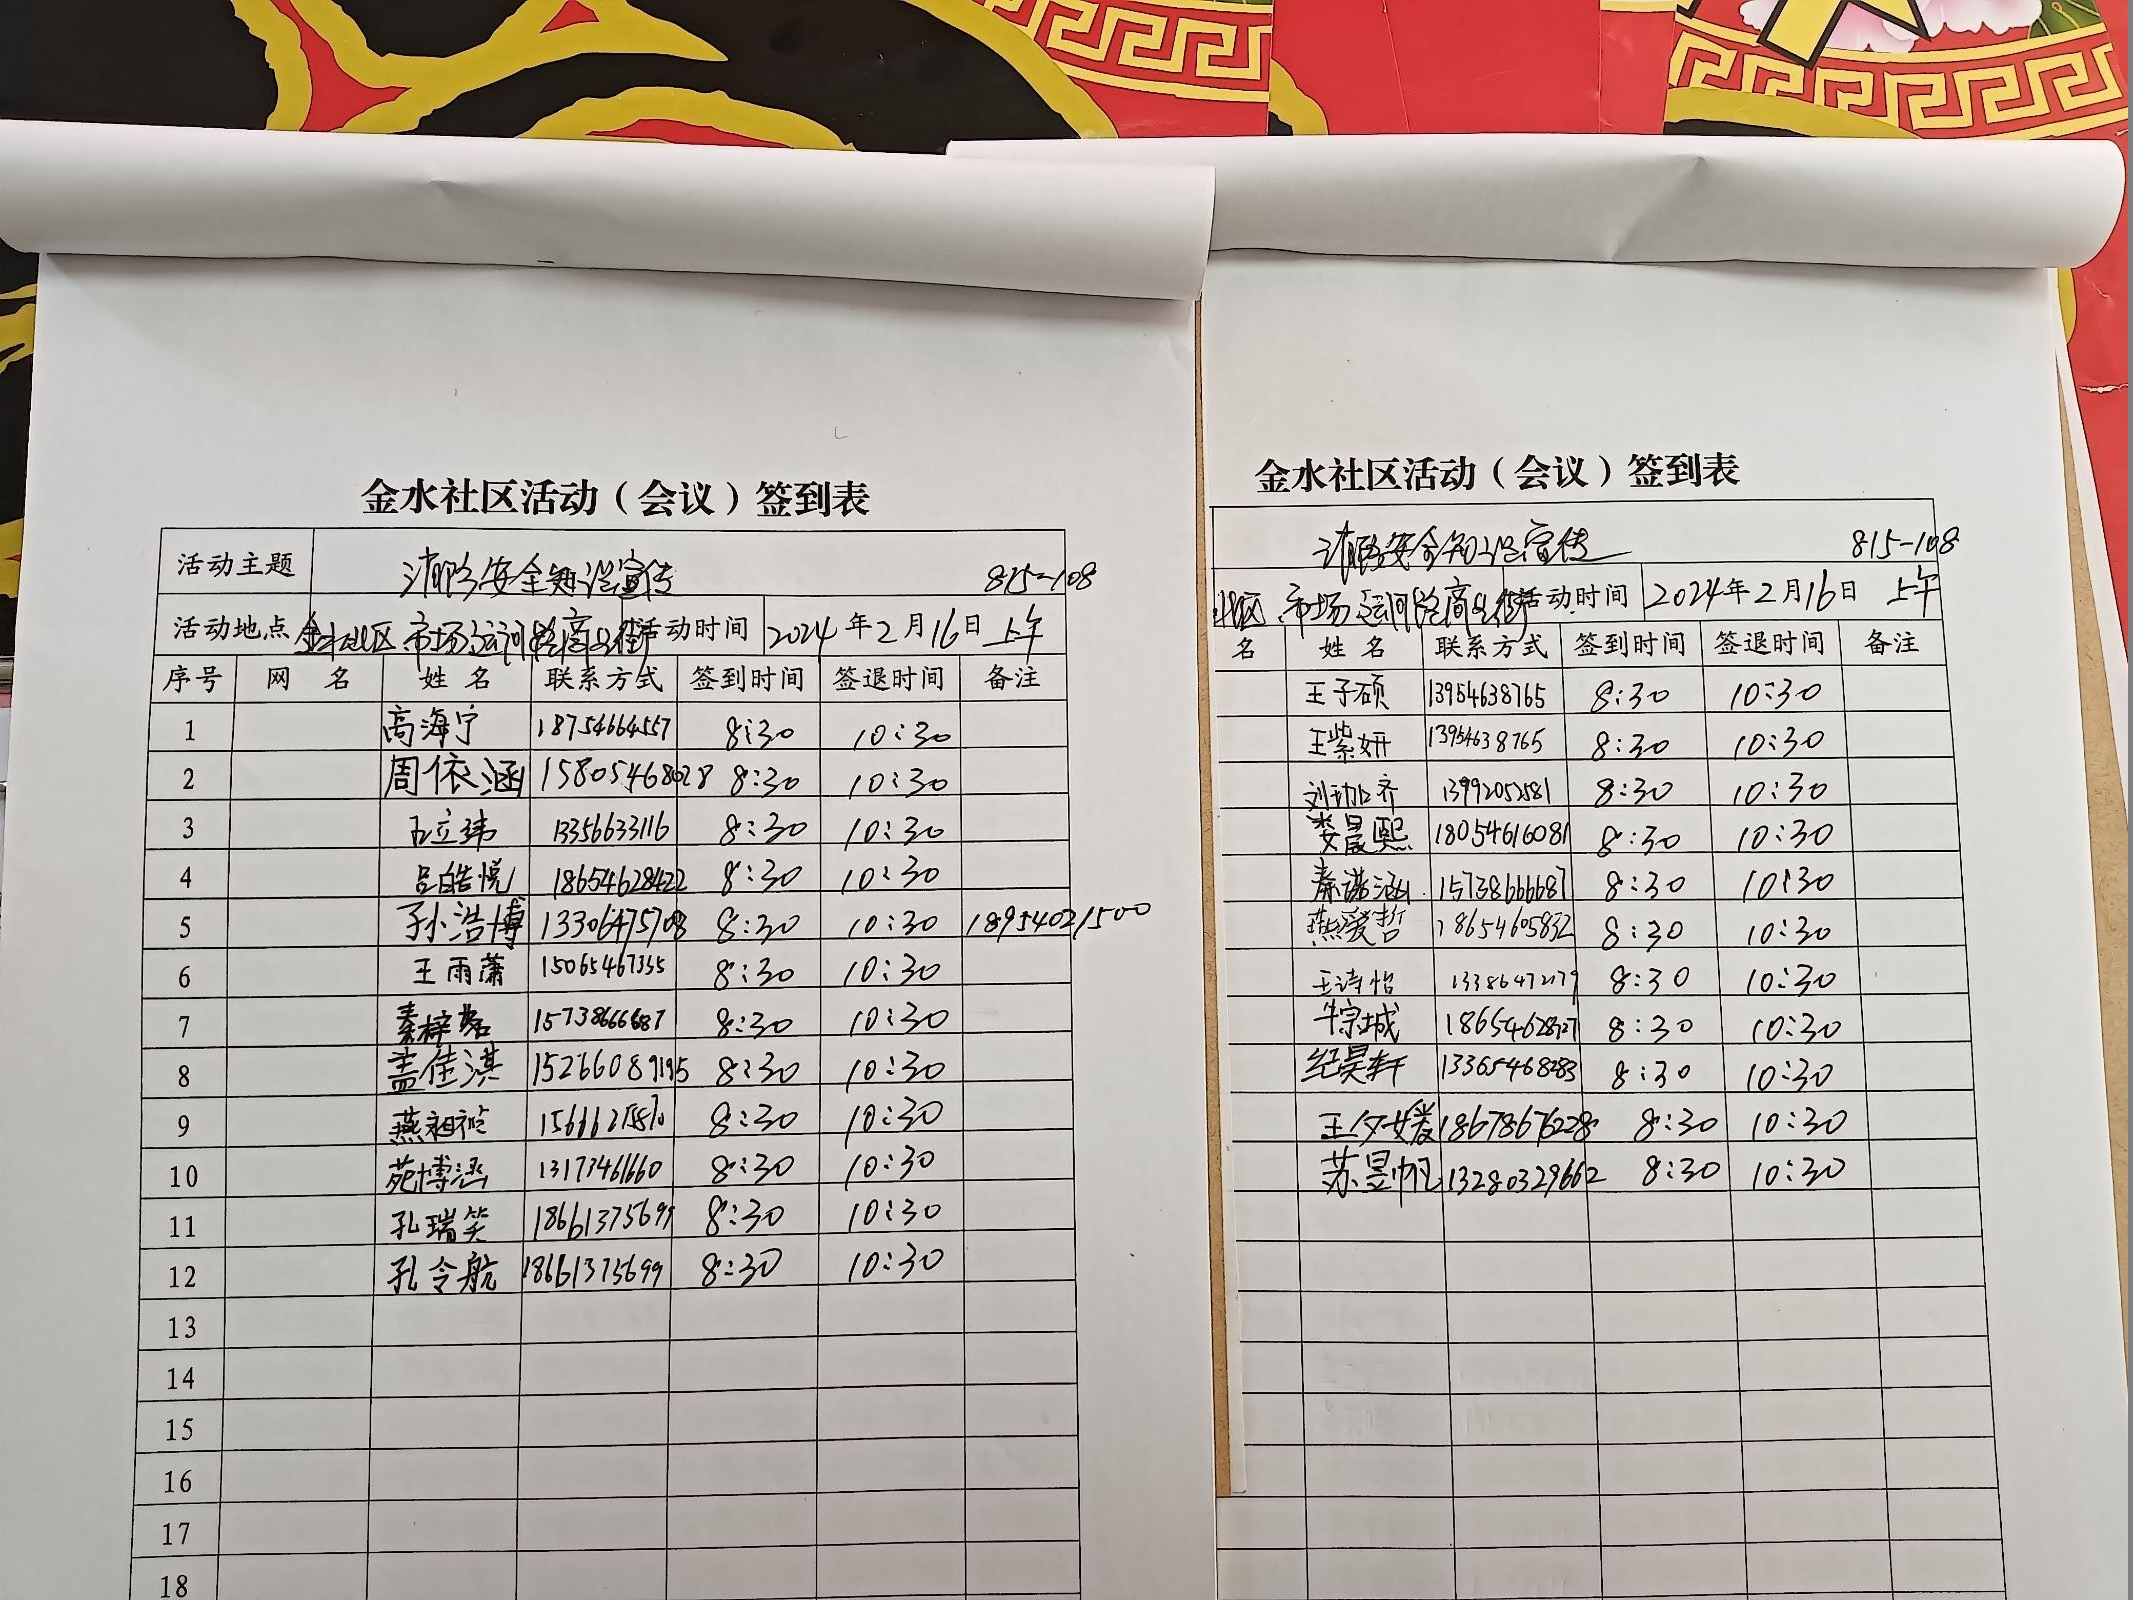 金水社区活动（会议）签到表
活动主题 消防安全知识宣传 815-108
活动地点 金水社区 市场 运河路商业街 活动时间 2024年2月16日 上午
序号 网 名 姓 名 联系方式 签到时间 签退时间 备注
1 高海宁 18754664557 8:30 10:30
2 周依涵 15805468028 8:30 10:30
3 立玮 13356633116 8:30 10:30
4 吕皓悦 18654628422 8:30 10:30
5 孙浩博 13306475708 8:30 10:30 18954021500
6 王雨萧 15065467335 8:30 10:30
7 秦梓茗 15738666687 8:30 10:30
8 盖佳淇 15266089195 8:30 10:30
9 燕祖 8:30 10:30
10 苑博涵 13173461660 8:30 10:30
11 孔瑞笑 18661375699 8:30 10:30
12 孔令航 18661375699 8:30 10:30
13
14
15
16
17
18
金水社区活动（会议）签到表
消防安全知识宣传 815-108
社区 市场 运河路商业街 活动时间 2024年2月16日 上午
名 姓 名 联系方式 签到时间 签退时间 备注
王子硕 13954638765 8:30 10:30
王紫妍 13954638765 8:30 10:30
刘 齐 13992052581 8:30 10:30
娄晟熙 18054616081 8:30 10:30
秦诺涵 15738666687 8:30 10:30
燕爱哲 18654605832 8:30 10:30
王诗怡 13386472179 8:30 10:30
牛宗城 8:30 10:30
纪昊轩 13365468283 8:30 10:30
王夕媛 18678676228 8:30 10:30
苏昱帆 13280329662 8:30 10:30